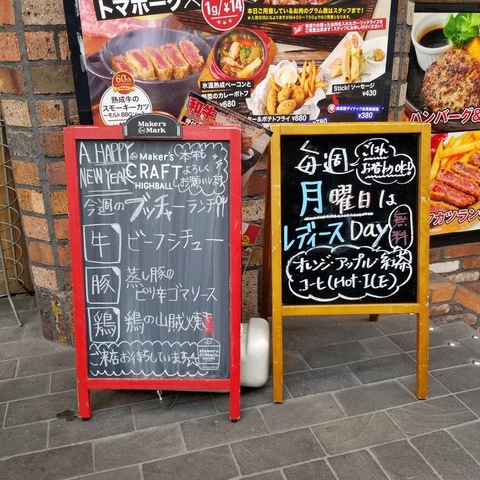 トマホーク
1g/¥14
本日ご用意しているお肉のグラム数はスタッフまで!
60分
熟成牛の
スモーキーカツ
~モルト
BBQ
氷温熟成ベーコンと
野菜のカレーポトフ
¥680
&ポテトフライ
¥880
Stick! ソーセージ
¥430
ハンバーグ&
Maker's
Mark
A HAPPY
NEW YEAR
Maker's
CRAFT
HIGHBALL
本年も
よろしく
お願いします
今週のブッチャーランチ!!
牛 ビーフシチュー
豚 蒸し豚の
ピリ辛ゴマソース
鶏 鶏の山賊火焼き
ご来店お待ちしています
Maker's
Mark
毎週
ごはん
お替り
OK!
月曜日は
レディースDay
無料
オレンジ・アップル・紅茶
コーヒ(Hot・ICE)